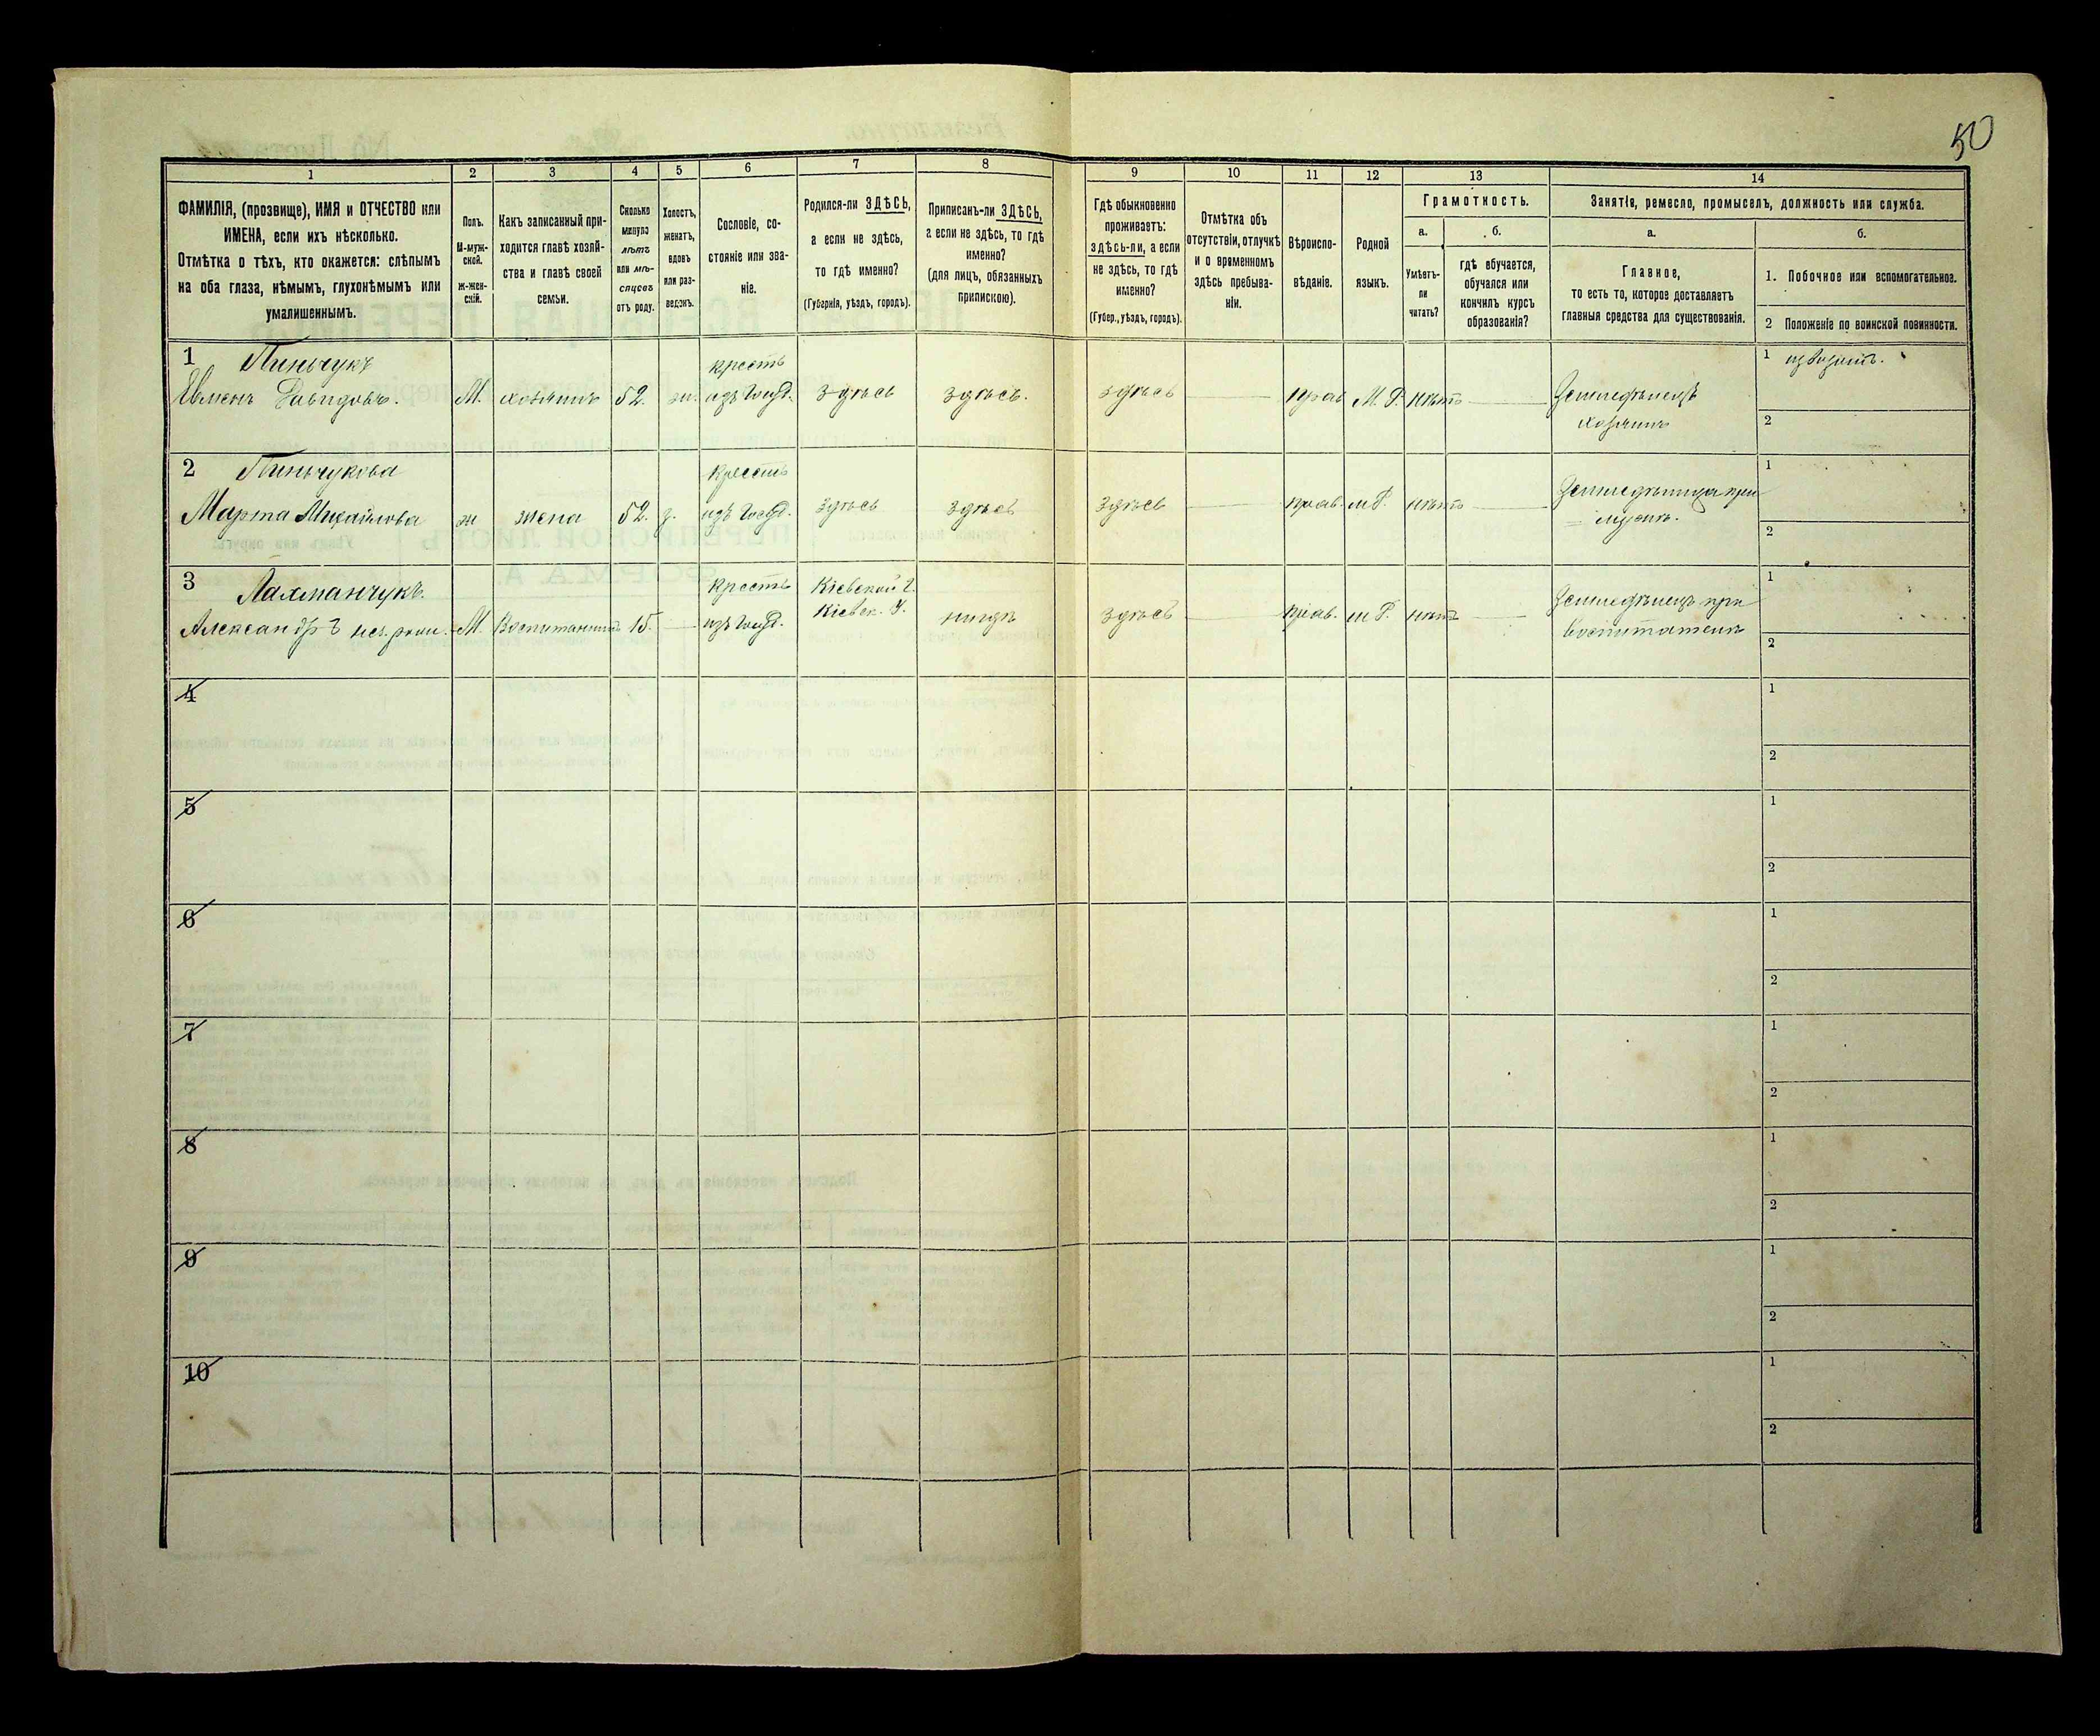 50
1
2
3
4
5
6
7
8
9
10
11
12
13
14
ФАМИЛІЯ, (прозвище), ИМЯ и ОТЧЕСТВО или
ИМЕНА, если ихъ нѣсколько.
Отмѣтка о тѣхъ, кто окажется: слѣпымъ
на оба глаза, нѣмымъ, глухонѣмымъ или
умалишеннымъ.
Полъ.
М-муж-
ской.
Ж-жен-
скій.
Какъ записанный при-
ходится главѣ хозяй-
ства и главѣ своей
семьи.
Сколько
минуло
лѣтъ
или мѣ-
сяцевъ
отъ роду.
Холостъ,
женатъ,
вдовъ
или раз-
веденъ.
Сословіе, со-
стояніе или зва-
ніе.
Родился-ли ЗДѢСЬ,
а если не здѣсь,
то гдѣ именно?
(Губернія, уѣздъ, городъ).
Приписанъ-ли ЗДѢСЬ,
а если не здѣсь, то гдѣ
именно?
(для лицъ, обязанныхъ
припискою).
Гдѣ обыкновенно
проживаетъ:
здѣсь-ли, а если
не здѣсь, то гдѣ
именно?
(Губер., уѣздъ, городъ).
Отмѣтка объ
отсутствіи, отлучкѣ
и о временномъ
здѣсь пребыва-
ніи.
Вѣроиспо-
вѣданіе.
Родной
языкъ.
Грамотность.
а.
Умѣетъ-
ли
читать?
б.
гдѣ обучается,
обучался или
кончилъ курсъ
образованія?
Занятія, ремесло, промыселъ, должность или служба.
а.
Главное,
то есть то, которое доставляетъ
главныя средства для существованія.
б.
1. Побочное или вспомогательное.
2 Положеніе по воинской повинности.
1 Пинчукъ
Евменъ Давидовъ.
М.
хозяинъ
52.
ж.
крестъ
изъ госуд.
здѣсь
здѣсь.
здѣсь
прав
М. Р.
нѣтъ
Земледѣлецъ
хозяинъ
1 извозъ.
2
2 Пинчукова
Марта Михайлова
ж
жена
52.
з.
крестъ
изъ госуд.
здѣсь
здѣсь
здѣсь
прав.
м Р.
нѣтъ
Земледѣлица при
мужѣ.
1
2
3 Лахманчукъ.
Александръ
М.
Воспитанникъ
15.
крестъ
изъ госуд.
Кіевской г.
Кіевск. У.
здѣсь
прав.
м Р.
нѣтъ
Земледѣлецъ при
воспитателѣ
1
2
4
1
2
5
1
2
6
1
2
7
1
2
8
1
2
9
1
2
10
1
2